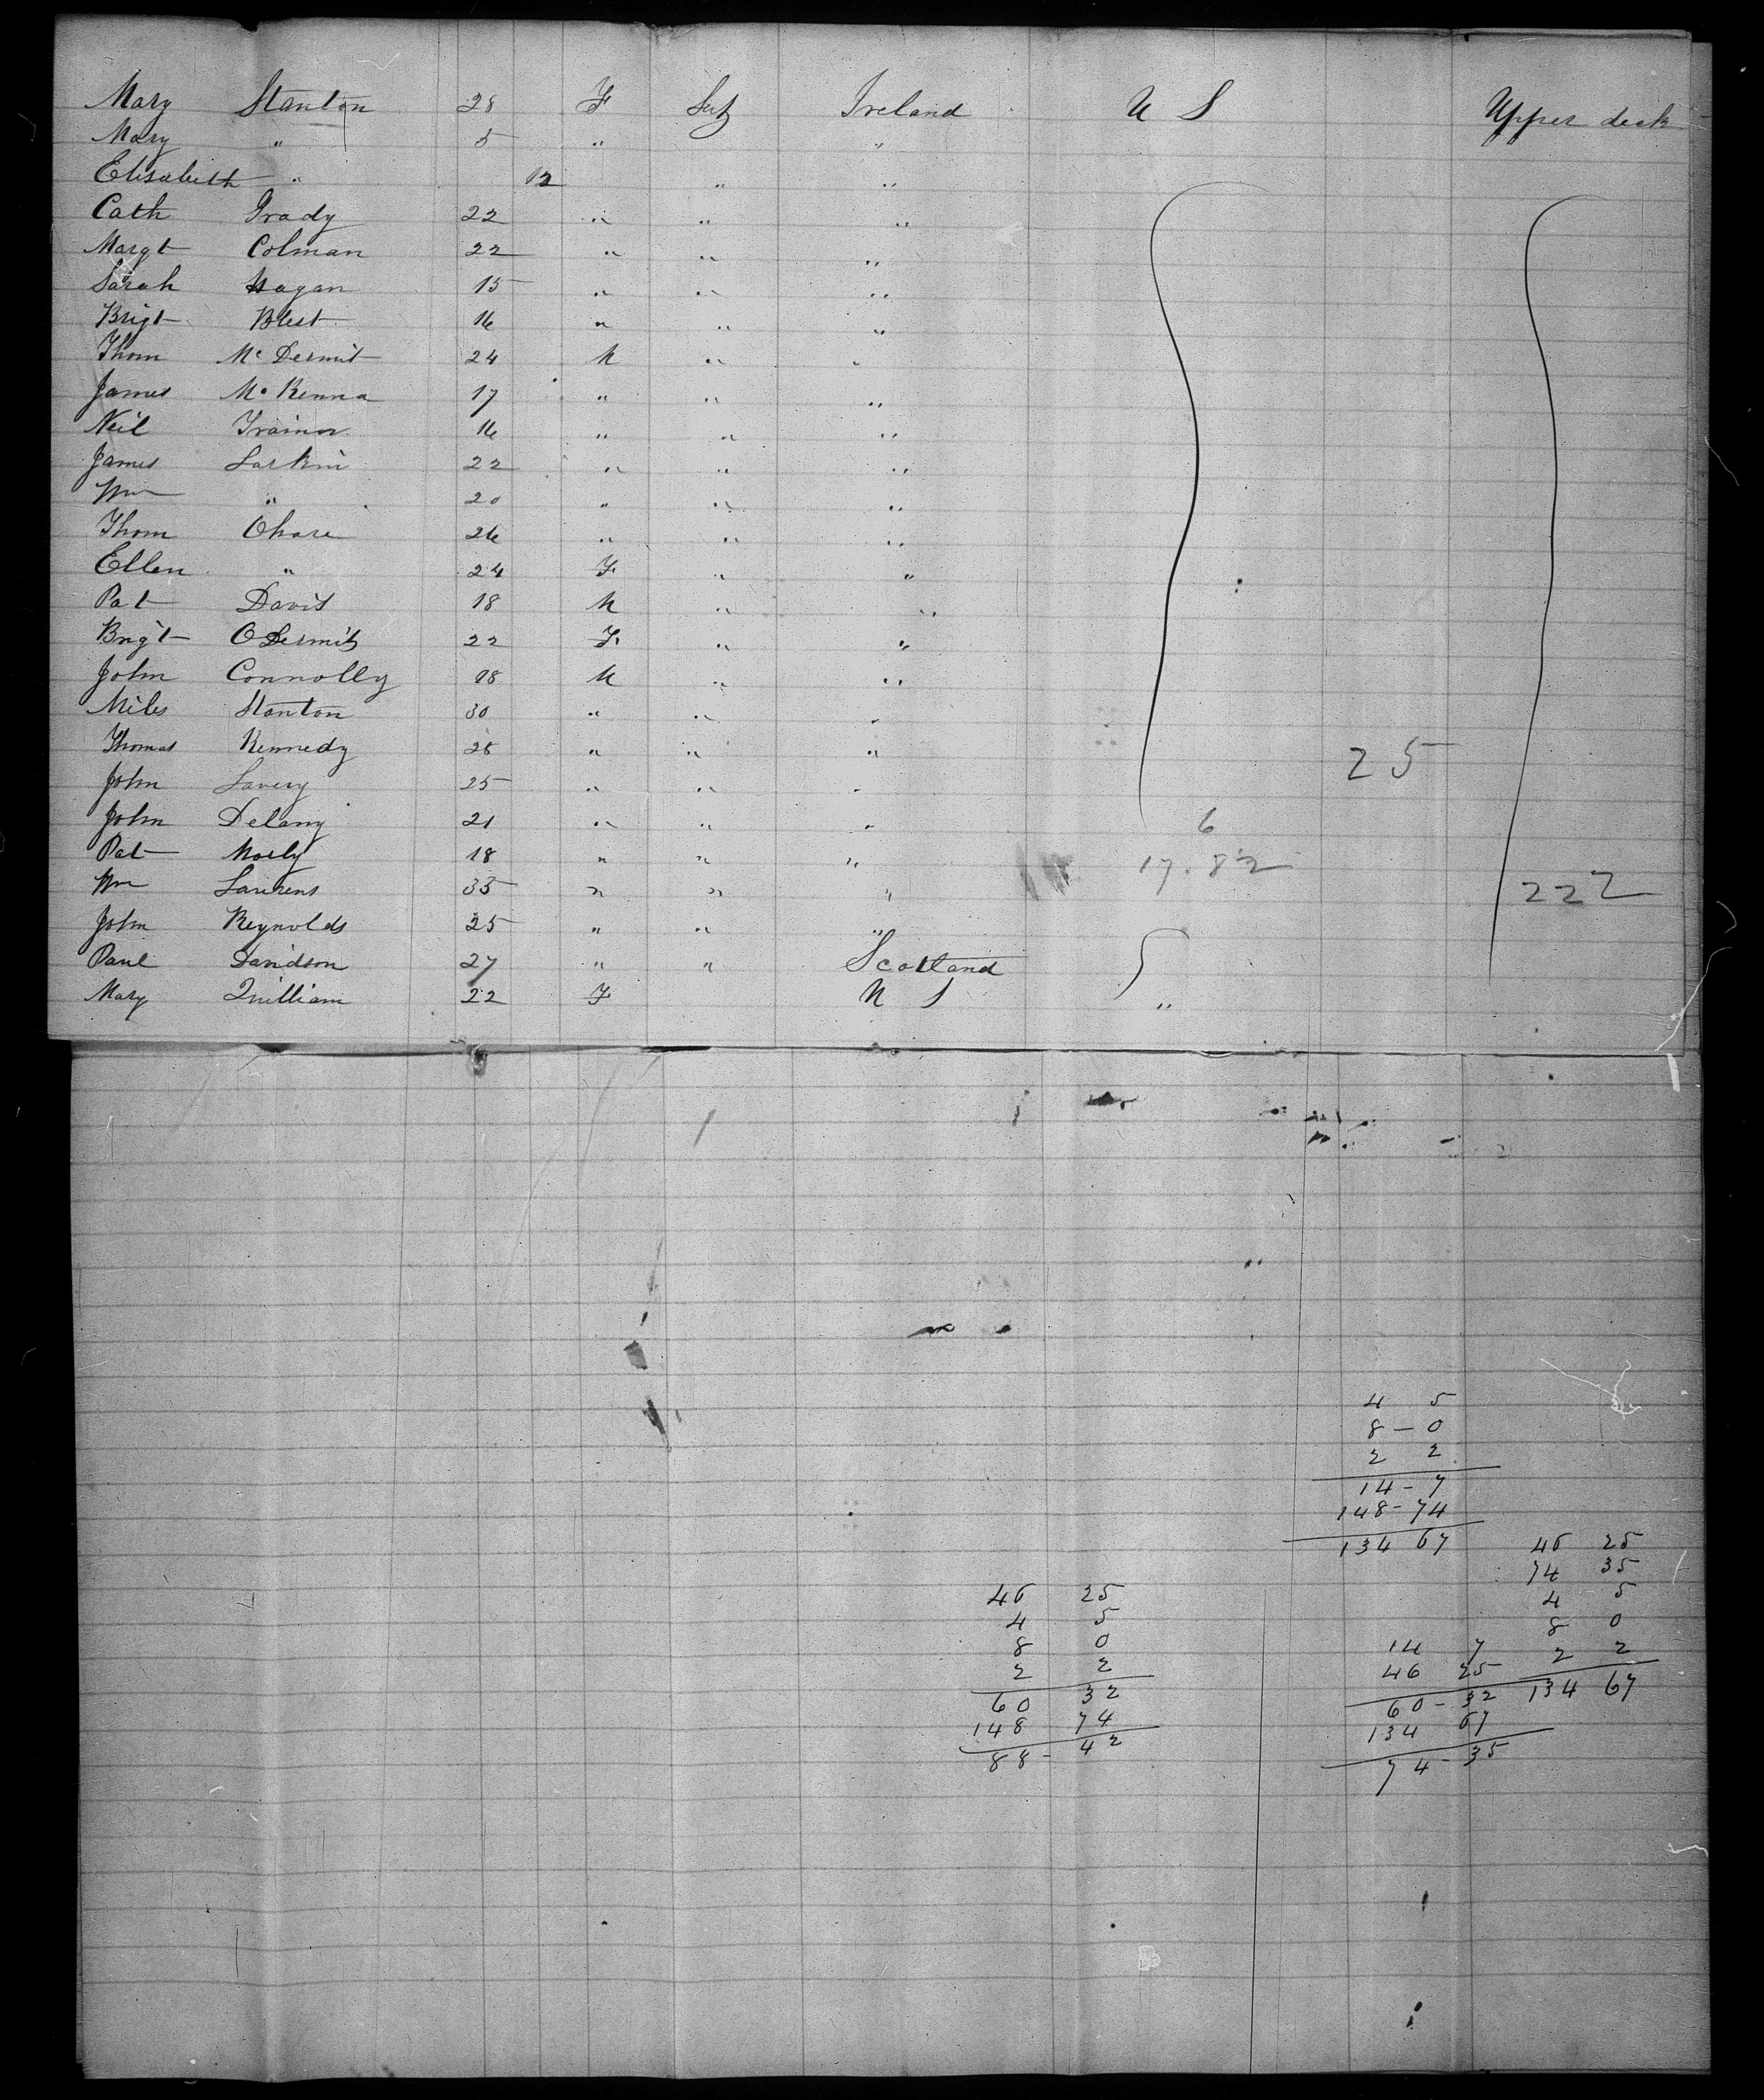 Mary Stanton 28 F Ireland U S Upper deck
Mary " 5 " "
Elisabeth " 12 " "
Cath Grady 22 " " "
Margt Colman 22 " " "
Sarah Hagan 15 " " "
Brigt Blest 16 " " "
Thom Mc Dermit 24 M " "
James Mc Kenna 17 " " "
Neil Trainor 16 " " "
James Larkin 22 " " "
Wm " 20 " " "
Thom Ohare 26 " " "
Ellen " 24 F " "
Pat Davis 18 M " "
Brigt O Dermit 22 F " "
John Connolly 18 M " "
Miles Stanton 30 " " "
Thomas Kennedy 28 " " " 25
John Lavery 25 " " "
John Delany 21 " " " 6
Pat 18 " " " 17.82
Wm 35 " " " 222
John Reynolds 25 " " "
Paul Davidson 27 " " Scotland
Mary Quilliam 22 F U S "
4 5
8 - 0
2 2
14 - 7
148 - 74
134 67
46 25
74 35
4 5
8 0
2 2
134 67
46 25
4 5
8 0
2 2
60 32
148 74
88 - 42
14 7
46 25
60 - 32
134 67
74 - 35